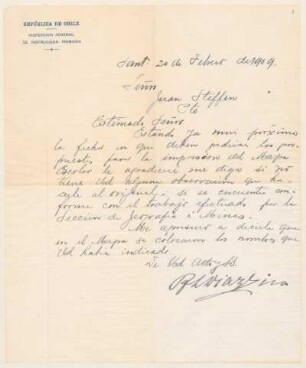 REPÚBLICA DE CHILE
INSPECCION JENERAL
DE INSTRUCCION PRIMARIA
Sant. 20 de Febrero de 1909.
Señor
Juan Steffen
Pte
Estimado Señor
Estando ya mui próxima
la fecha en que deben pedirse las pro-
puestas para la impresion del Mapa
Escolar le agradeceré me diga si no
tiene Ud alguna observacion que ha-
cerle al orijinal, i si se encuentra con-
forme con el trabajo efectuado por la
Seccion de Jeografía i Minas.
Me apresuro a decirle que
en el Mapa se colocaron los nombres que
Ud habia indicado.
De Ud Atto y SS.